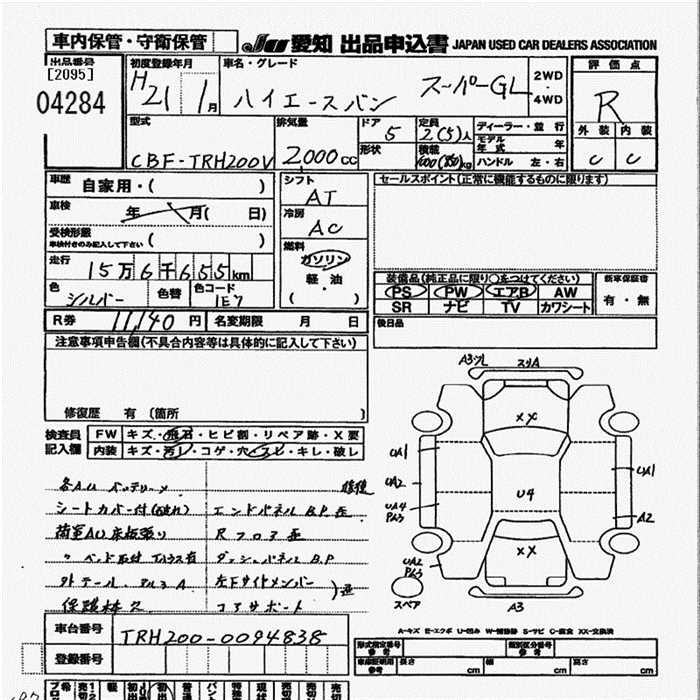 車内保管・守衛保管
JU 愛知 出品申込書 JAPAN USED CAR DEALERS ASSOCIATION
出品番号
[2095]
04284
初度登録年月
H21 1月
車名・グレード
ハイエースバン スーパーGL
2WD
・
4WD
評価点
R
外装 内装
C C
型式
CBF-TRH200V
排気量
2000cc
ドア
5
形状
定員
2(5)人
積載
kg
ディーラー・並行
モデル年式 年
ハンドル 左・右
車歴
自家用・( )
車検
年 月( 日)
受検形態
車検付きのみ記入して下さい ( )
走行
15万6千655km
色
シルバー
色替
色コード
1E7
シフト
AT
冷房
AC
燃料
ガソリン
軽・油
( )
セールスポイント(正常に機能するものに限ります)
装備品(純正品に限り○をつけてください)
PS PW エアB AW
SR ナビ TV カワシート
新車保証書
有・無
後日品
R券 11,140円 名変期限 月 日
注意事項申告欄(不具合内容等は具体的に記入して下さい)
修復歴 有 〔箇所 〕
検査員
記入欄
FW キズ・飛石・ヒビ割・リペア跡・X要
内装 キズ・汚レ・コゲ・穴・キレ・破レ
シートカバー付(破れ)
エンドパネル B.P 歪
荷室AU床板張り
Rフロア歪
ダッシュパネル B.P
外テール、アルミA
左下サイドメンバー
コアサポート
歪
保証林欠
A3ソL スリA
XX
UA1
UA2
UA4
PA3
U4
UA1
A2
XX
UA2
PA3
スペア
A3
A-キズ E-エクボ U-凹み W-補修跡 S-サビ C-腐食 XX-交換済
車台番号
TRH200-0094838
登録番号
型式指定番号
参考
類別区分番号
参考
車庫証明用
参考
長さ cm 幅 cm 高さ cm